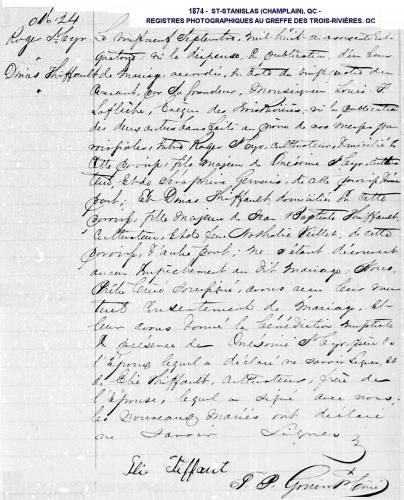 1874 - ST-STANISLAS (CHAMPLAIN), QC -
REGISTRES PHOTOGRAPHIQUES AU GREFFE DES TROIS-RIVIÈRES. QC
Le vingt neuf Septembre, mil huit cent soixante et
Roger St Cyr quatorze, vu la dispense de publication d'un banc
& de Mariage accordée, en date du vingt quatre du
Dinas Thiffault courant, par Sa Grandeur, Monseigneur Louis F.
Laflèche, Evêque des Trois Rivières, vu la publication
des deux autres bans faite au prône de nos Messes pa
roissiales, Entre Roger St Cyr, cultivateur, domicilié en
cette paroisse, fils Majeur de Onésime St Cyr, cultiva
teur, Et de Séraphine Gervais, de cette paroisse d'une
part; Et Dinas Thiffault domiciliée en cette
paroisse, fille Majeure de Jean Baptiste Thiffault,
cultivateur, Et de feue Nathalie Veillet, de cette
paroisse, d'autre part; ne s'étant découvert
aucun Empêchement au dit Mariage; Nous,
Prêtre Curé Soussigné, avons reçu leur mu
tuel Consentement de Mariage, Et
leur avons donné la Bénédiction Nuptiale
En présence de Onésime St Cyr, père de
l'Epoux, lequel a déclaré ne savoir signer, et
de Elie Thiffault, cultivateur, frère de
l'épouse, lequel a signé avec nous;
les Nouveaux Mariés ont déclaré
ne Savoir Signer
Elie Tiffaut
Ptre Curé